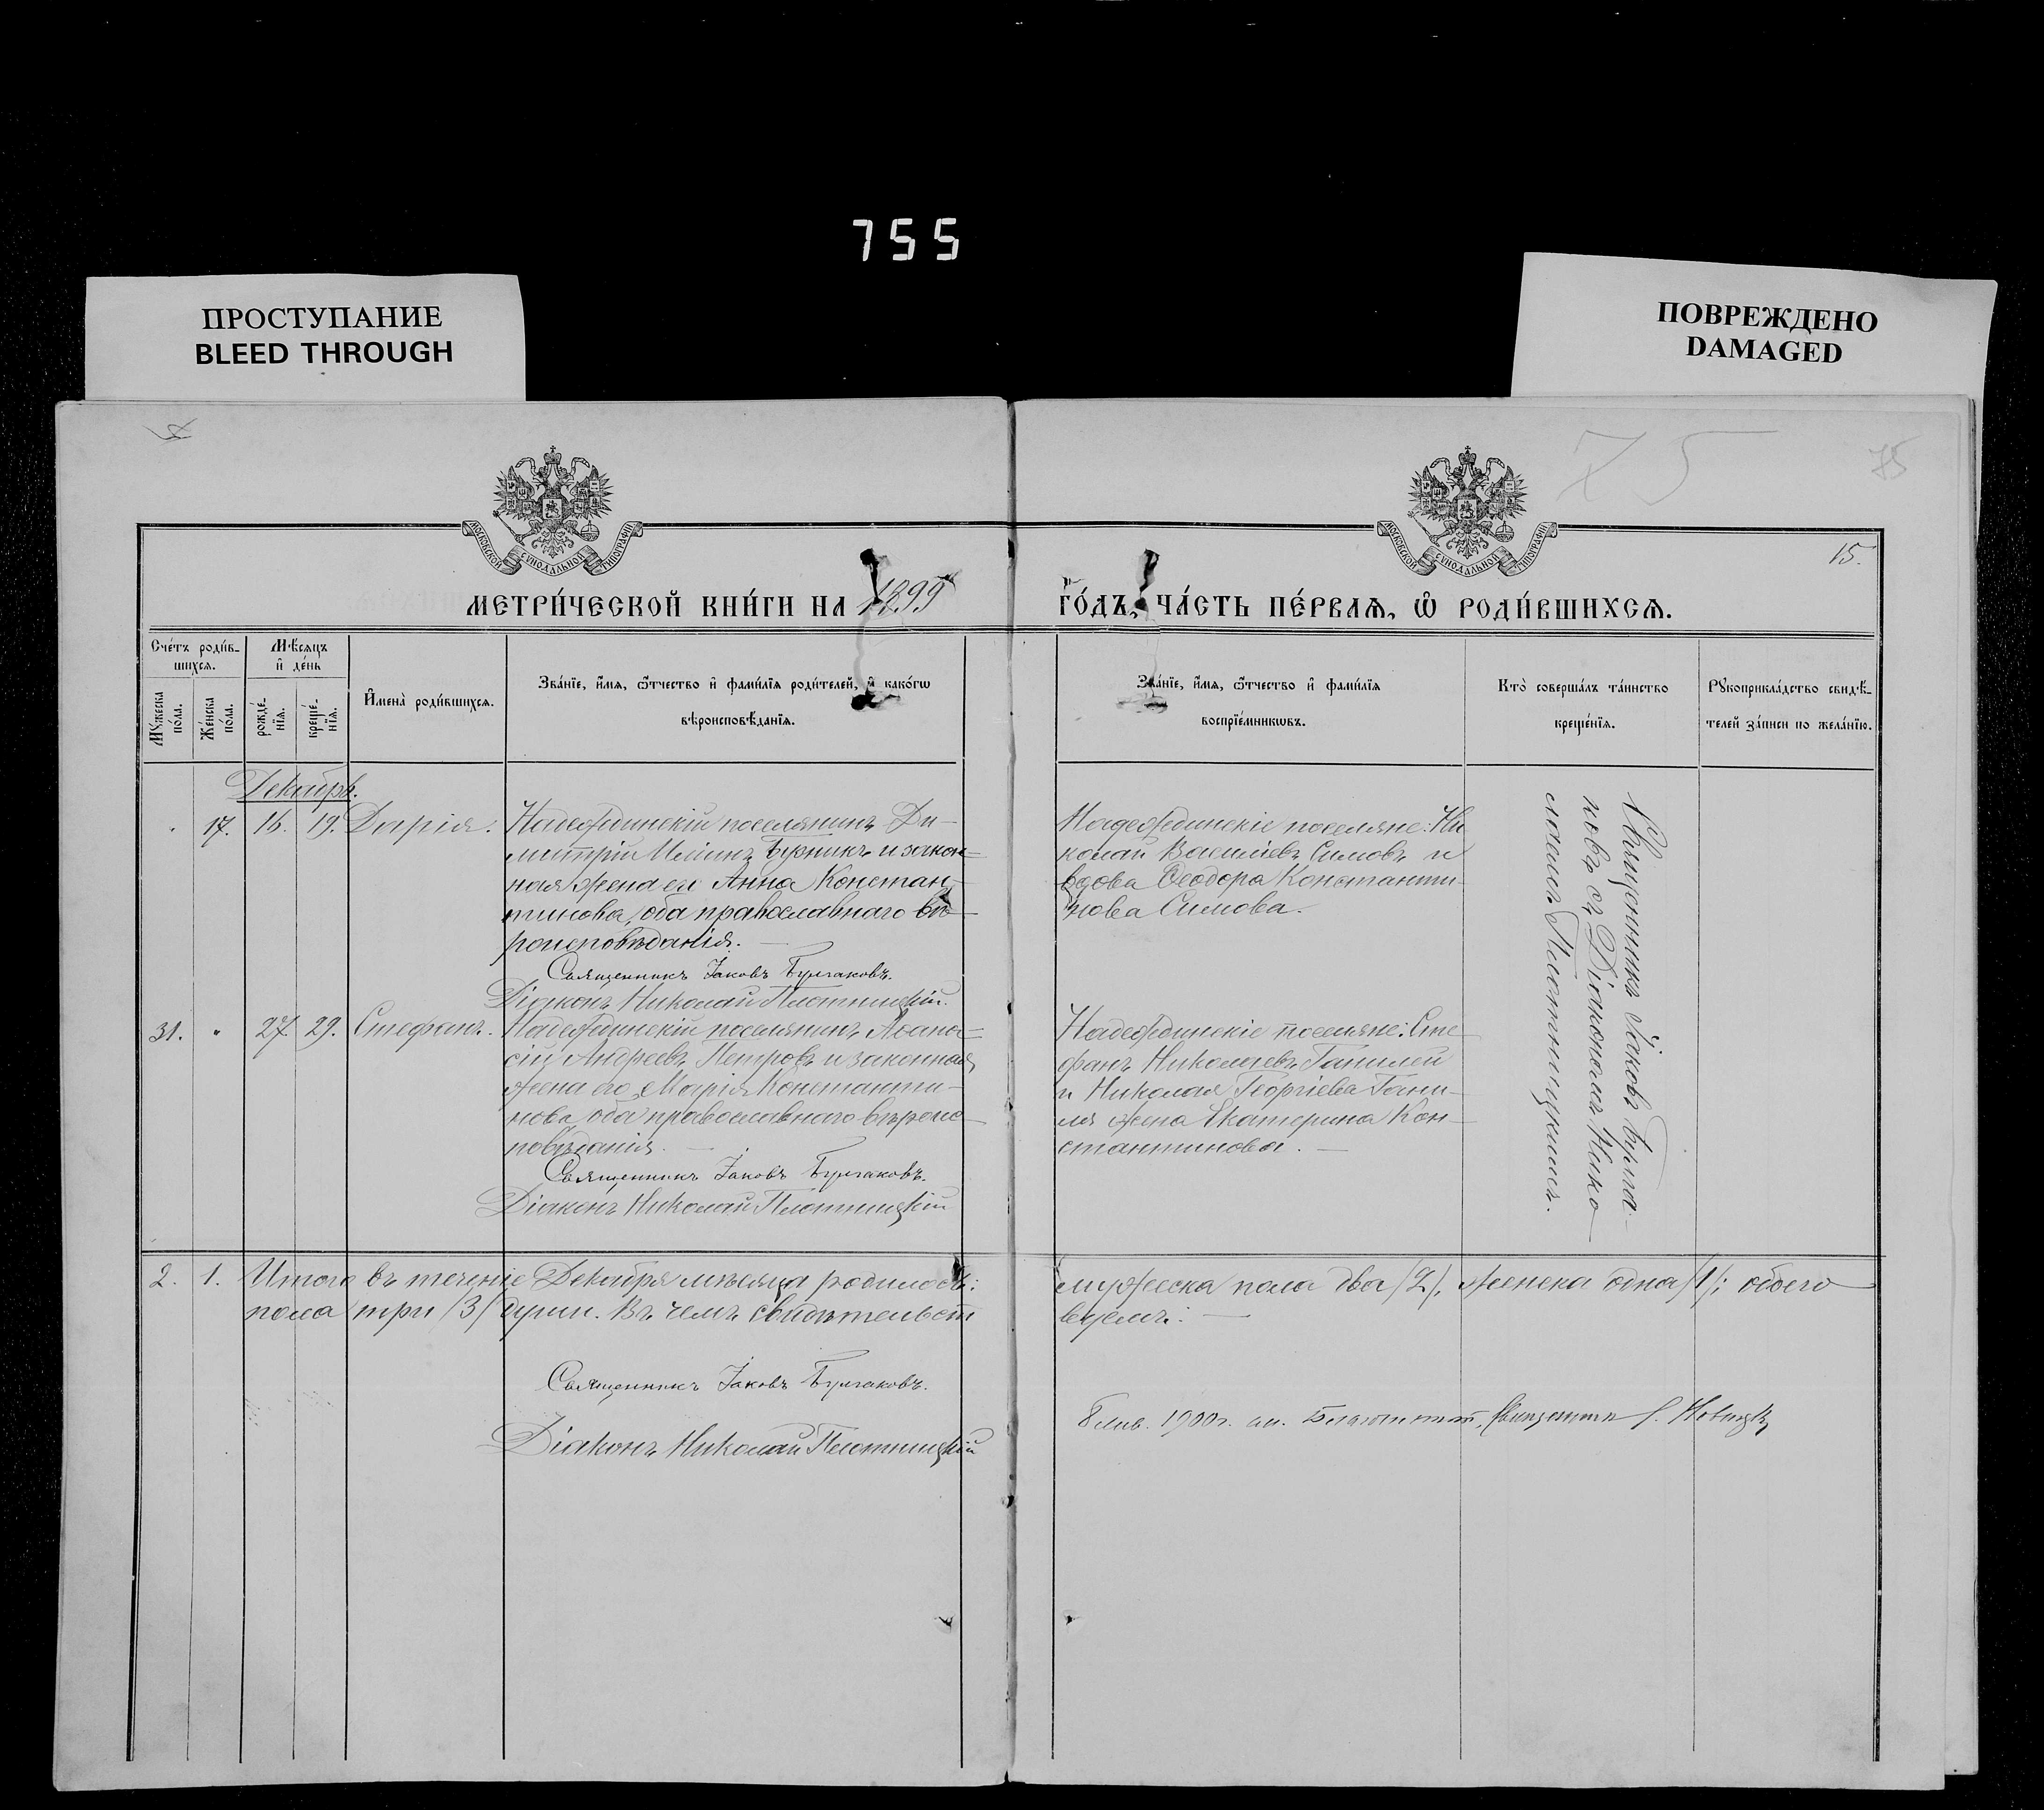 755
ПРОСТУПАНИЕ
BLEED THROUGH
ПОВРЕЖДЕНО
DAMAGED
75
75
МОСКОВСКОЙ СУНОДАЛЬНОЙ ТИПОГРАФІИ
МОСКОВСКОЙ СУНОДАЛЬНОЙ ТИПОГРАФІИ
15.
МЕТРИ́ЧЕСКОЙ КНИ́ГИ НА 1899
ГО́ДЪ, ЧА́СТЬ ПЕ́РВАѦ, Ѽ РОДИ́ВШИХСѦ.
Сче́тъ роди́в-
шихсѧ.
Мѣ́сѧцъ
и҆ де́нь
Мꙋ́жеска
по́ла.
Же́нска
по́ла.
рожде́-
нїѧ.
креще́-
нїѧ.
И҆мена̀ роди́вшихсѧ.
Зва́нїе, и҆́мѧ, ѻ҆́тчество и҆ фами́лїѧ роди́телей, и҆ како́гѡ
вѣроисповѣ́данїѧ.
Зва́нїе, и҆́мѧ, ѻ҆́тчество и҆ фами́лїѧ
воспрїе́мникѡвъ.
Кто̀ соверша́лъ та́инство
креще́нїѧ.
Рꙋкоприкла́дство свидѣ́-
телей за́писи по жела́нїю.
Декабрь.
17. 16. 19. Дарія.
Надеждинскій поселянинъ Ди-
митрій Ильинъ Бурникъ и закон-
ная жена его Анна Констан-
тинова, оба православнаго вѣ-
роисповѣданія.
Священникъ Іаковъ Булгаковъ.
Діаконъ Николай Плотницкій.
Надеждинскіе поселяне: Ни
колай Васильевъ Симовъ и
вдова Ѳеодора Константи-
нова Симова.
Священникъ Іаковъ Булга-
ковъ съ Діакономъ Нико-
лаемъ Плотницкимъ.
31. " 27. 29. Стефанъ.
Надеждинскій поселянинъ Аѳана-
сій Андреевъ Петровъ и законная
жена его Марія Константи-
нова, оба православнаго вѣроис-
повѣданія.
Священникъ Іаковъ Булгаковъ.
Діаконъ Николай Плотницкій
Надеждинскіе поселяне: Сте
фанъ Николаевъ Ганилей
и Николая Георгіева Гани-
ля жена Екатерина Кон-
стантинова.
2. 1. Итого въ теченіе Декабря мѣсяца родилось: мужеска пола два /2/, женска одна /1/; обоего
пола три /3/ души. Въ чемъ свидѣтельст вуемъ:
Священникъ Іаковъ Булгаковъ.
Діаконъ Николай Плотницкій
1900 г.